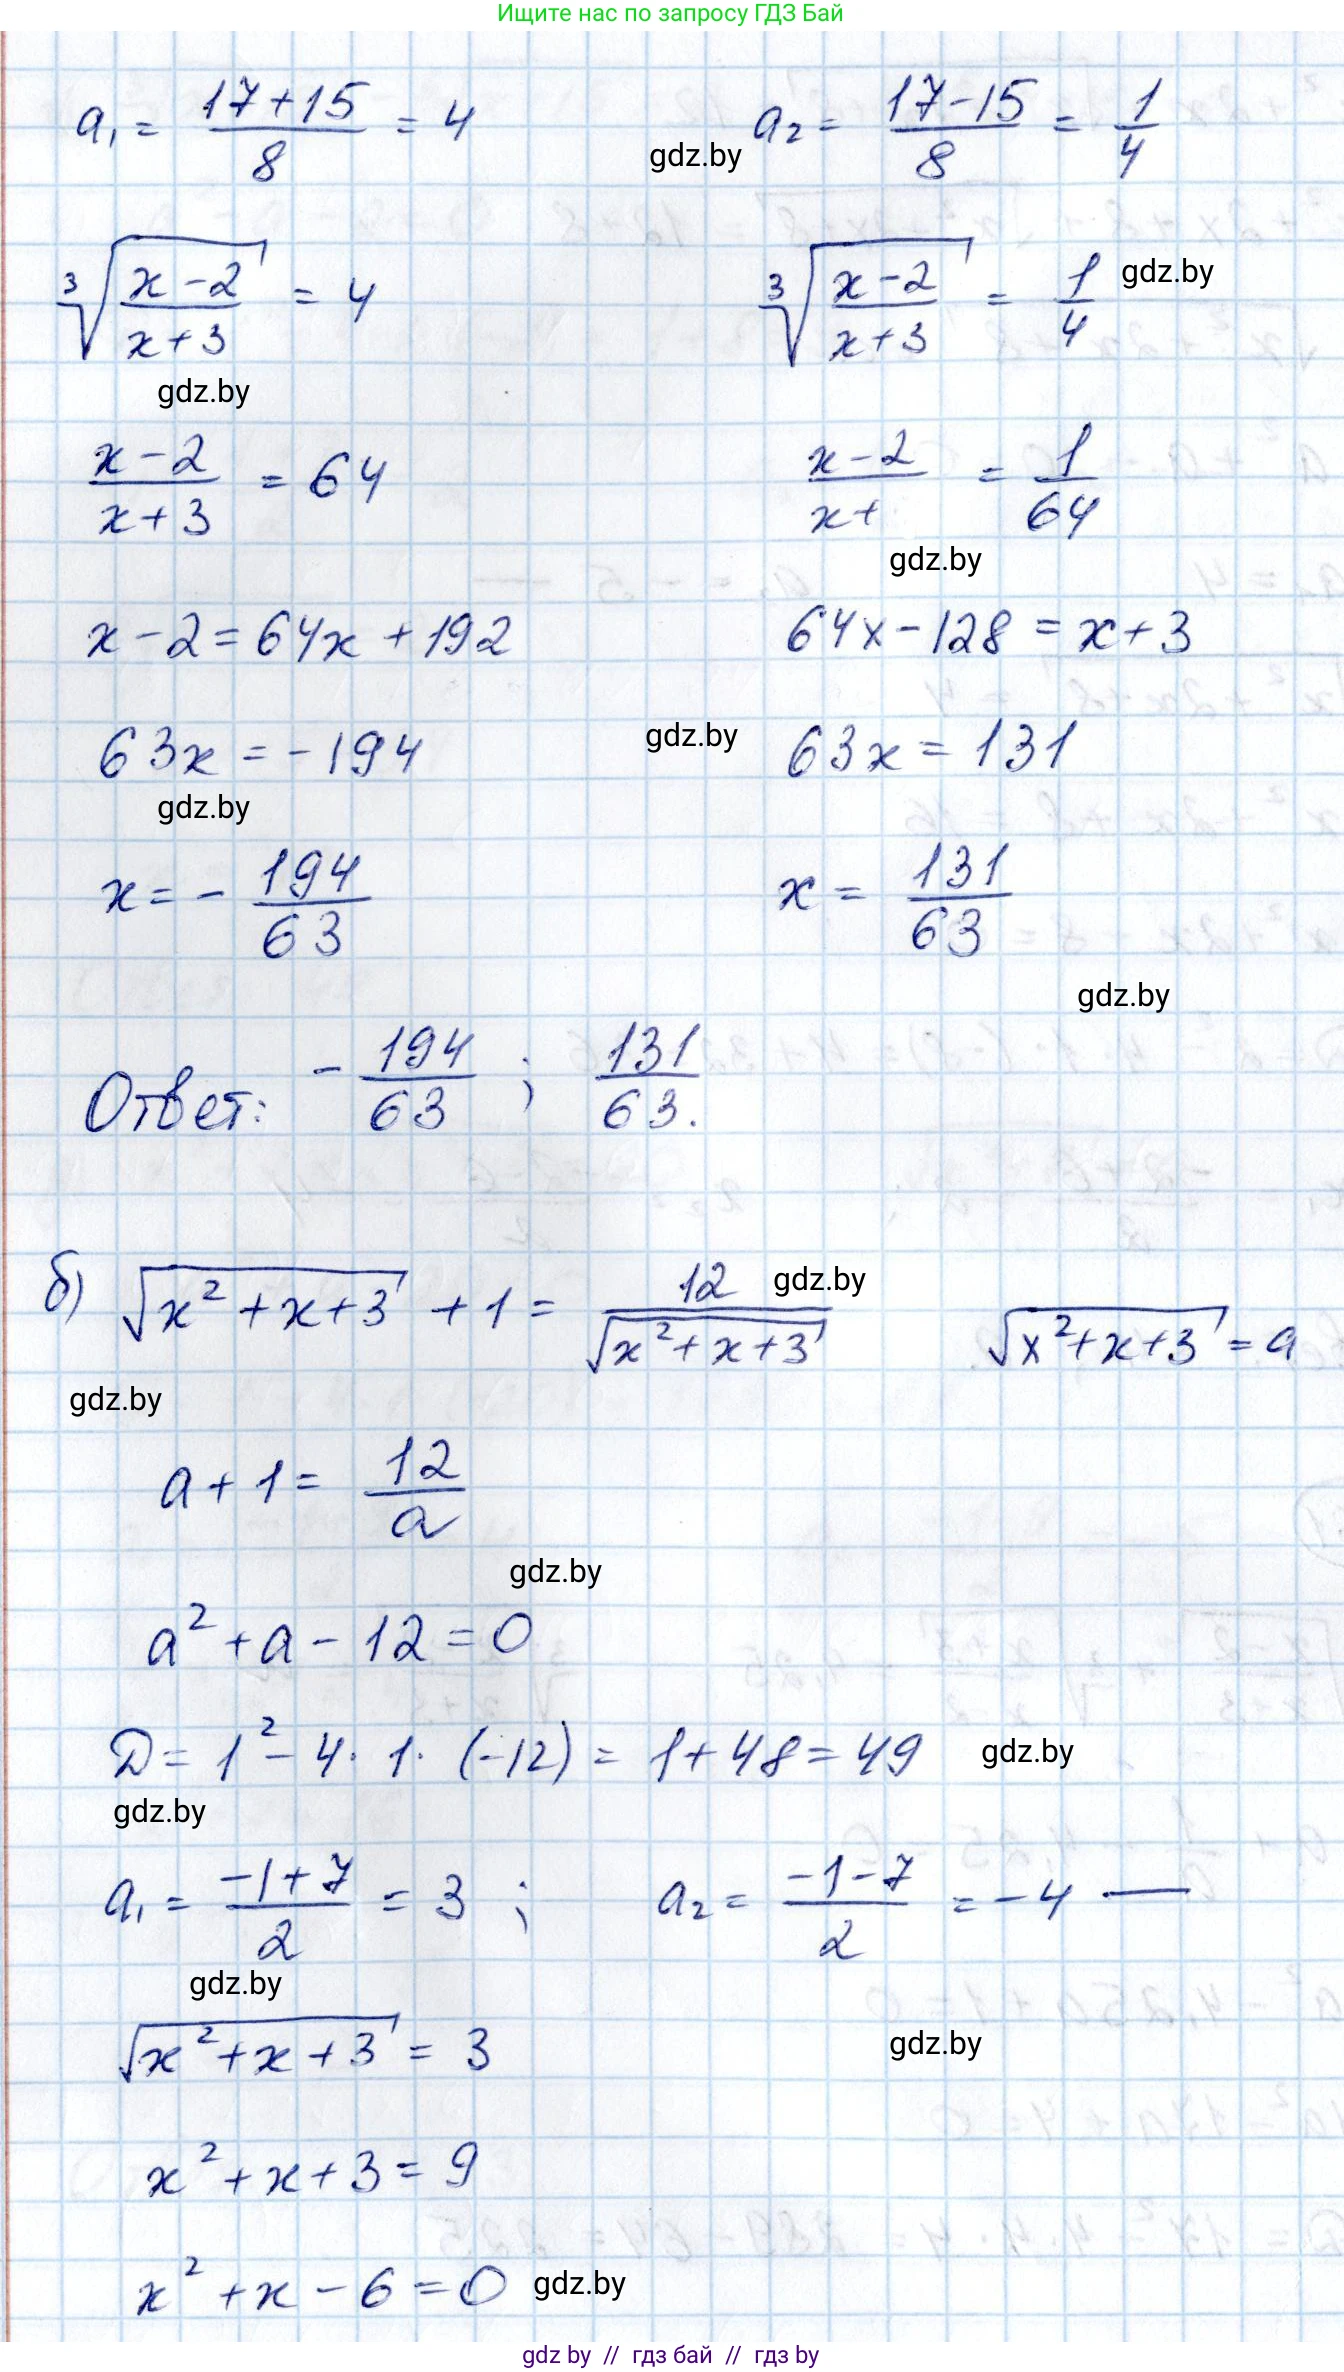 Ищите нас по запросу ГДЗ Бай
a₁ = (17+15)/8 = 4    a₂ = (17-15)/8 = 1/4
gdz.by
∛((x-2)/(x+3)) = 4    ∛((x-2)/(x+3)) = 1/4
gdz.by
gdz.by
(x-2)/(x+3) = 64    (x-2)/(x+ = 1/64
gdz.by
x-2=64x+192    64x-128=x+3
63x=-194    gdz.by    63x=131
gdz.by
x=-194/63    x=131/63
gdz.by
Ответ: -194/63 ; 131/63.
б) √(x²+x+3) + 1 = 12/√(x²+x+3)    √(x²+x+3) = a
gdz.by
gdz.by
a+1 = 12/a
gdz.by
a²+a-12=0
Д = 1²-4·1·(-12) = 1+48=49
gdz.by
gdz.by
a₁ = (-1+7)/2 = 3 ;    a₂ = (-1-7)/2 = -4 —
gdz.by
√(x²+x+3) = 3
gdz.by
x²+x+3=9
x²+x-6=0
gdz.by
gdz by // гдз бай // гдз by